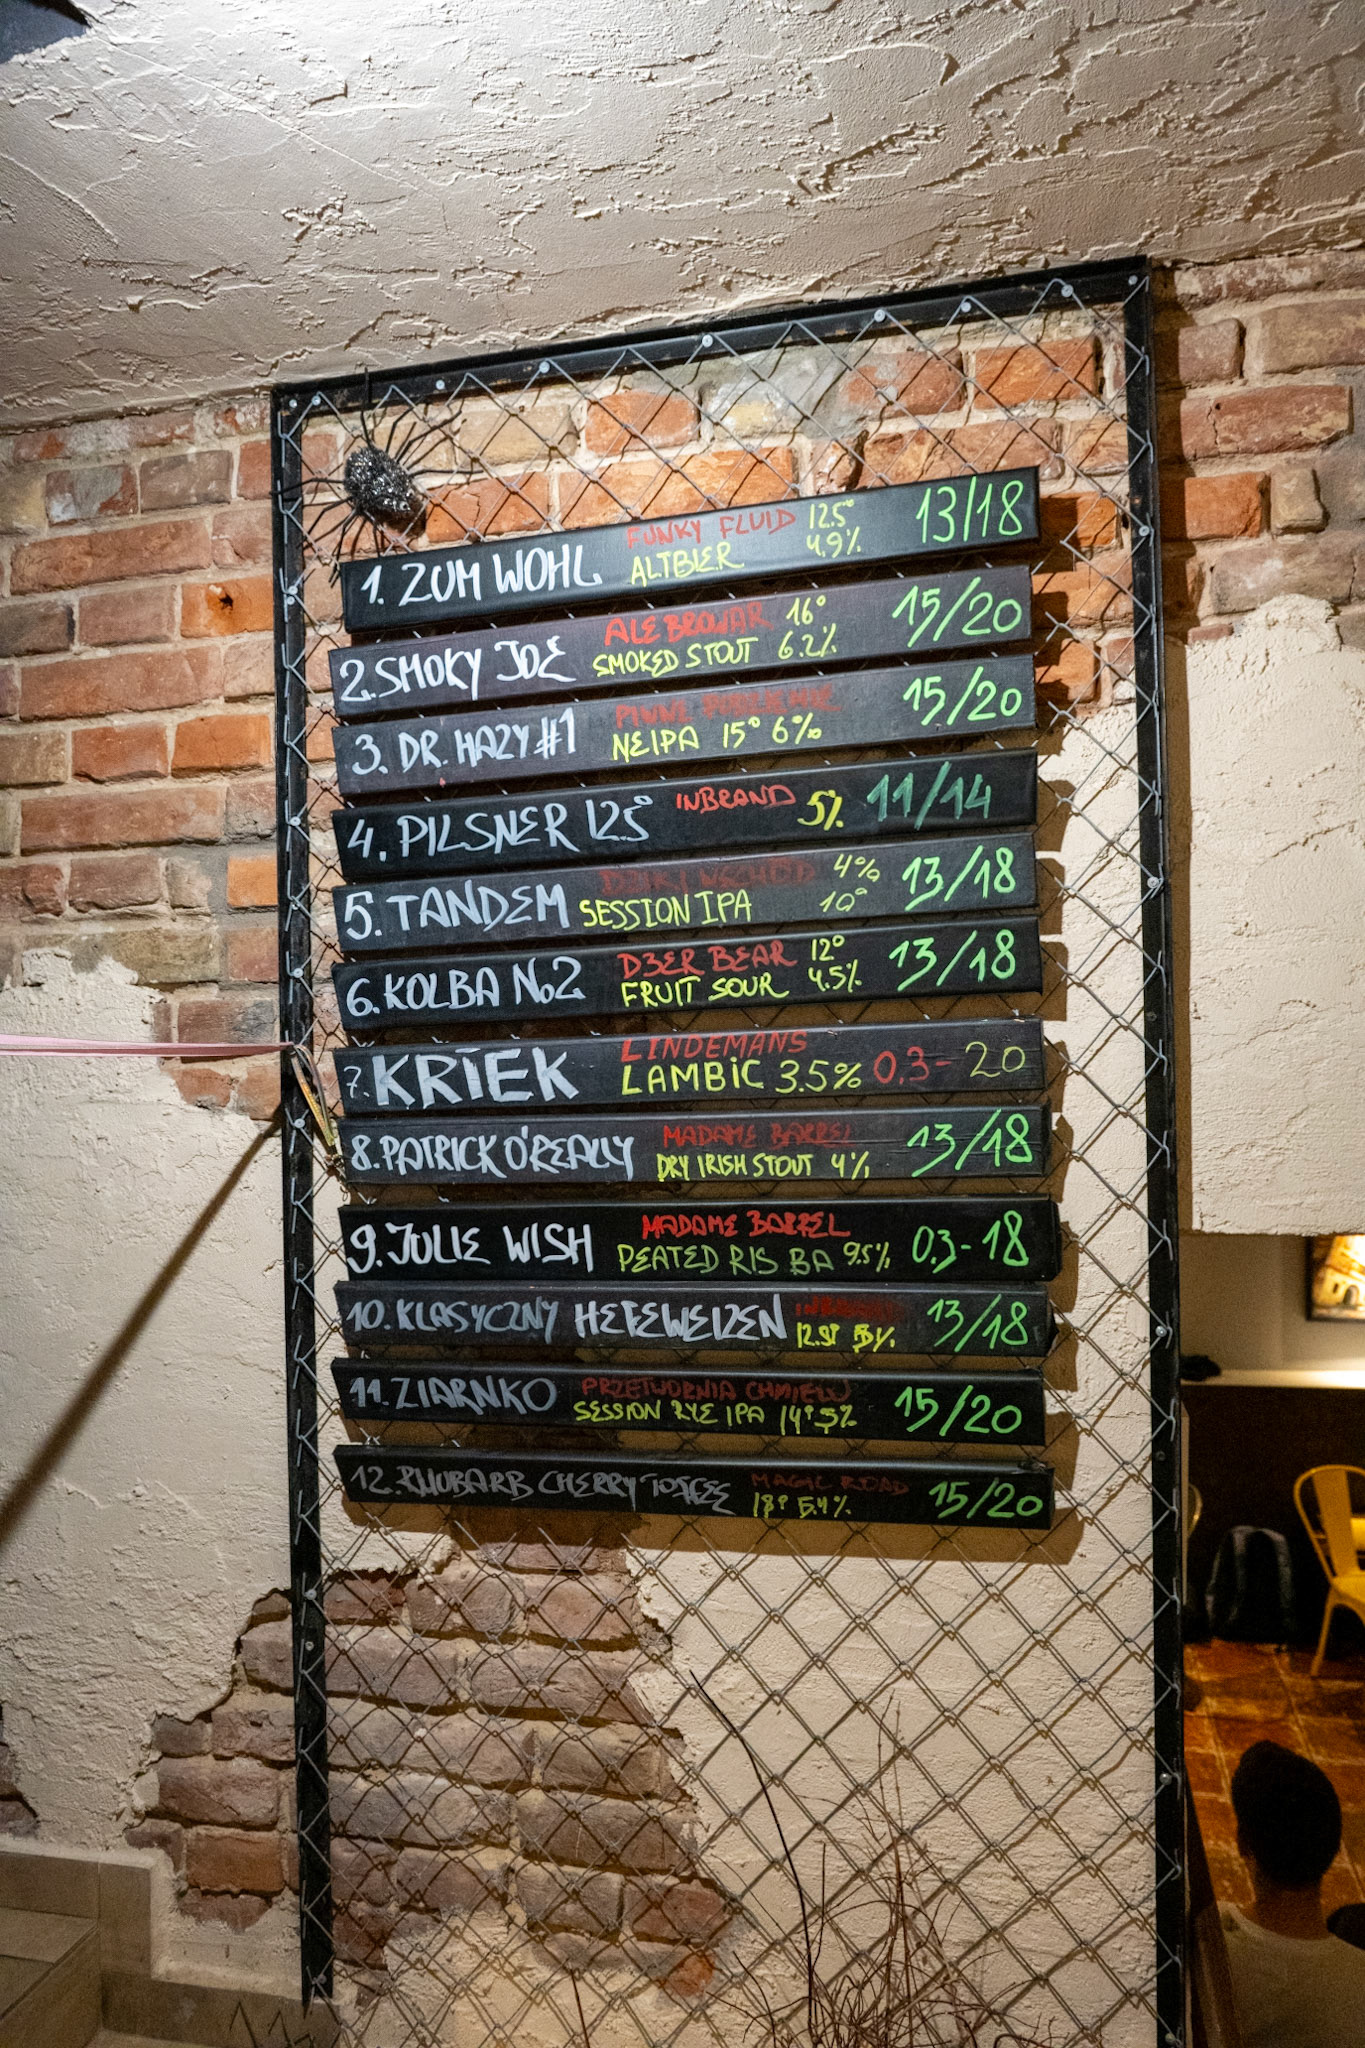 1. ZUM WOHL FUNKY FLUID 12.5° 13/18
ALTBIER 4.9%
2. SMOKY JOE ALEBROWAR 16° 15/20
SMOKED STOUT 6.2%
3. DR. HAZY #1 PINNE 15/20
NEIPA 15° 6%
4. PILSNER 12.5° INBRAND 5% 11/14
5. TANDEM DZIKI WSCHÓD 4% 13/18
SESSION IPA 10°
6. KOLBA No2 D3ER BEAR 12° 13/18
FRUIT SOUR 4.5%
7. KRIEK LINDEMANS 0.3- 20
LAMBIC 3.5%
8. PATRICK O'REALLY MADAME BARREL 13/18
DRY IRISH STOUT 4%
9. JULIE WISH MADAME BARREL 0.3-18
PEATED RIS BA 9.5%
10. KLASYCZNY HEFEWEIZEN INBRAND 13/18
12.5° 5%
11. ZIARNKO PRZETWÓRNIA CHMIELU 15/20
SESSION RYE IPA 14° 5%
12. RHUBARB CHERRY TOFFEE MAGIC ROAD 15/20
18° 5.4%